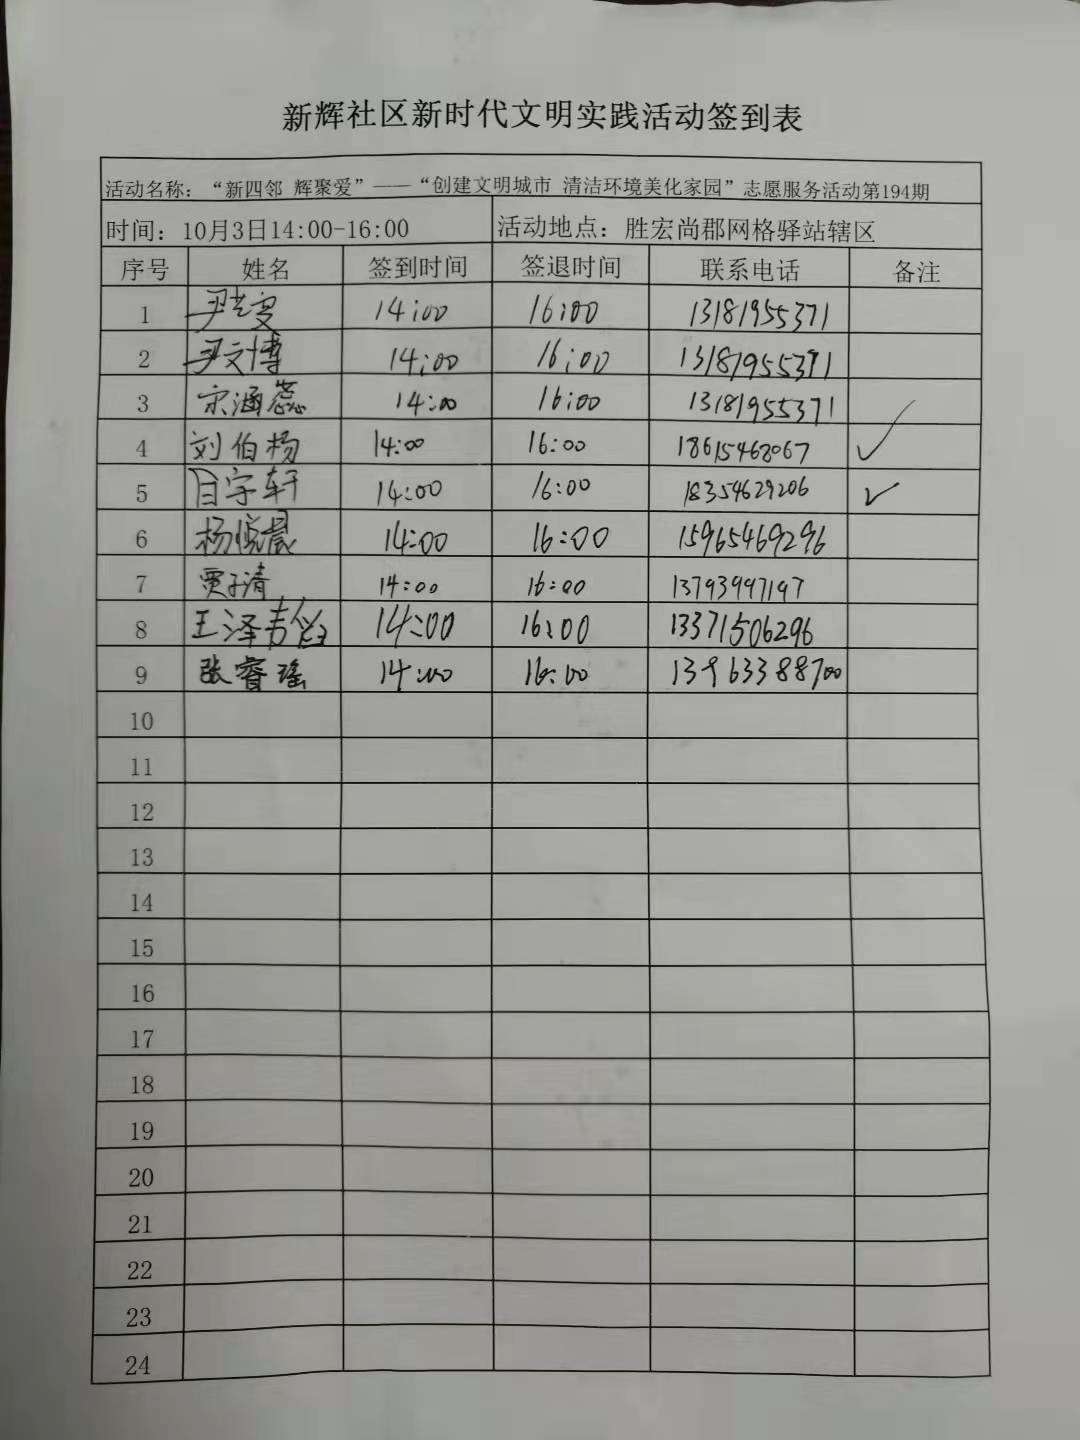 新辉社区新时代文明实践活动签到表
活动名称：“新四邻 辉聚爱”——“创建文明城市 清洁环境美化家园”志愿服务活动第194期
时间：10月3日14:00-16:00 活动地点：胜宏尚郡网格驿站辖区
序号 姓名 签到时间 签退时间 联系电话 备注
1 尹 14:00 16:00 13181955371
2 尹文博 14:00 16:00 13181955371
3 宋涵蕊 14:00 16:00 13181955371
4 刘伯杨 14:00 16:00 18615468067 ✓
5 宇轩 14:00 16:00 18354629206 ✓
6 杨悦晨 14:00 16:00 15965469296
7 贾子清 14:00 16:00 13793997197
8 王泽 14:00 16:00 13371506296
9 张睿瑶 14:00 16:00 13963388700
10
11
12
13
14
15
16
17
18
19
20
21
22
23
24